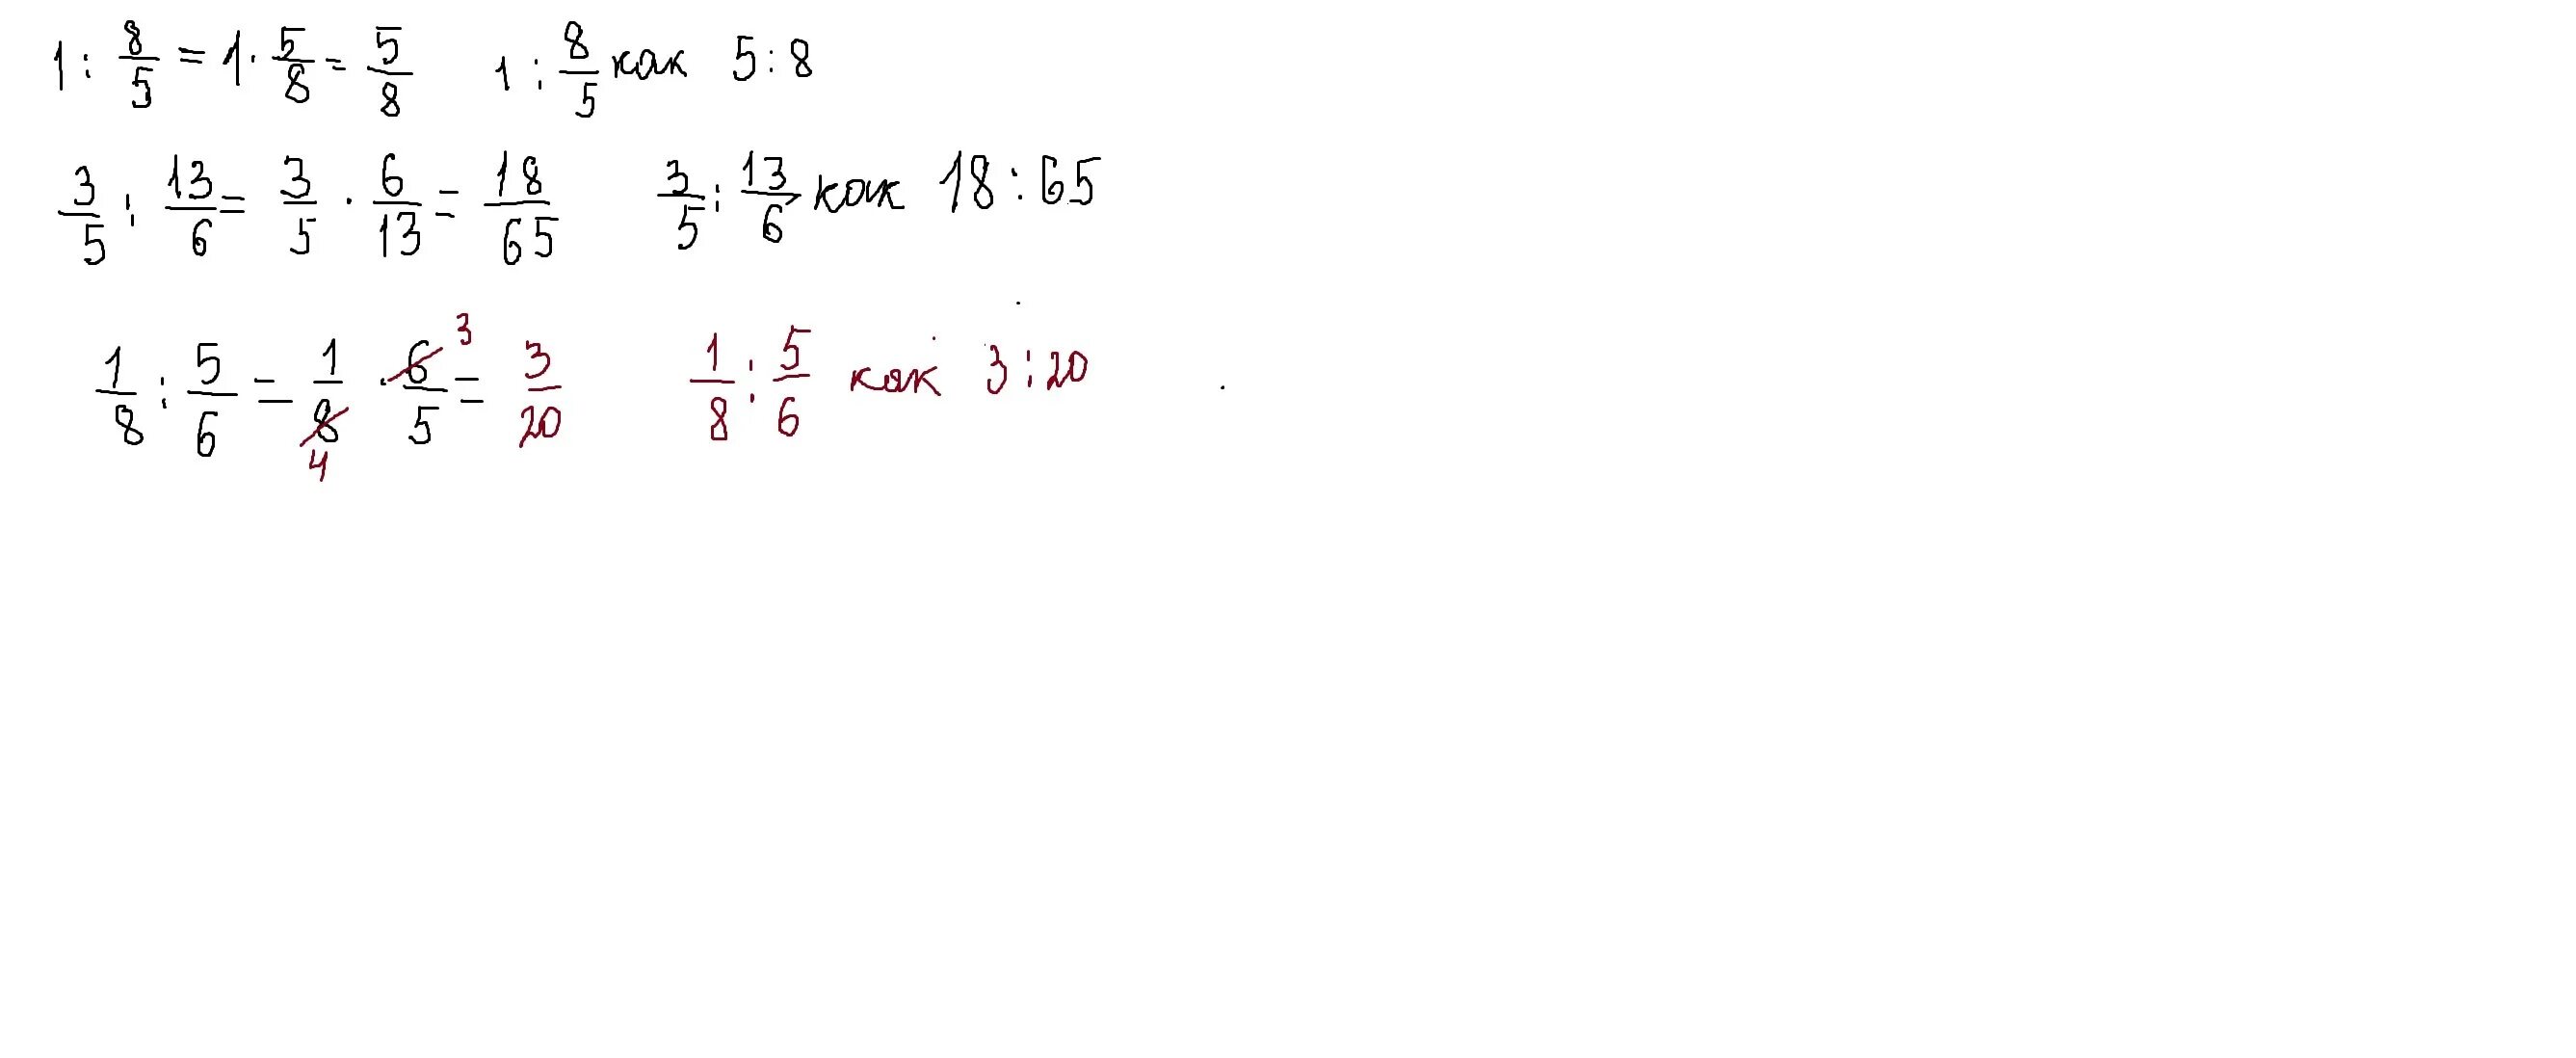 1 : 8/5 = 1 · 5/8 = 5/8 1 : 8/5 как 5 : 8
3/5 : 13/6 = 3/5 · 6/13 = 18/65 3/5 : 13/6 как 18 : 65
1/8 : 5/6 = 1/8 4 · 6/5 3 = 3/20 1/8 : 5/6 как 3 : 20